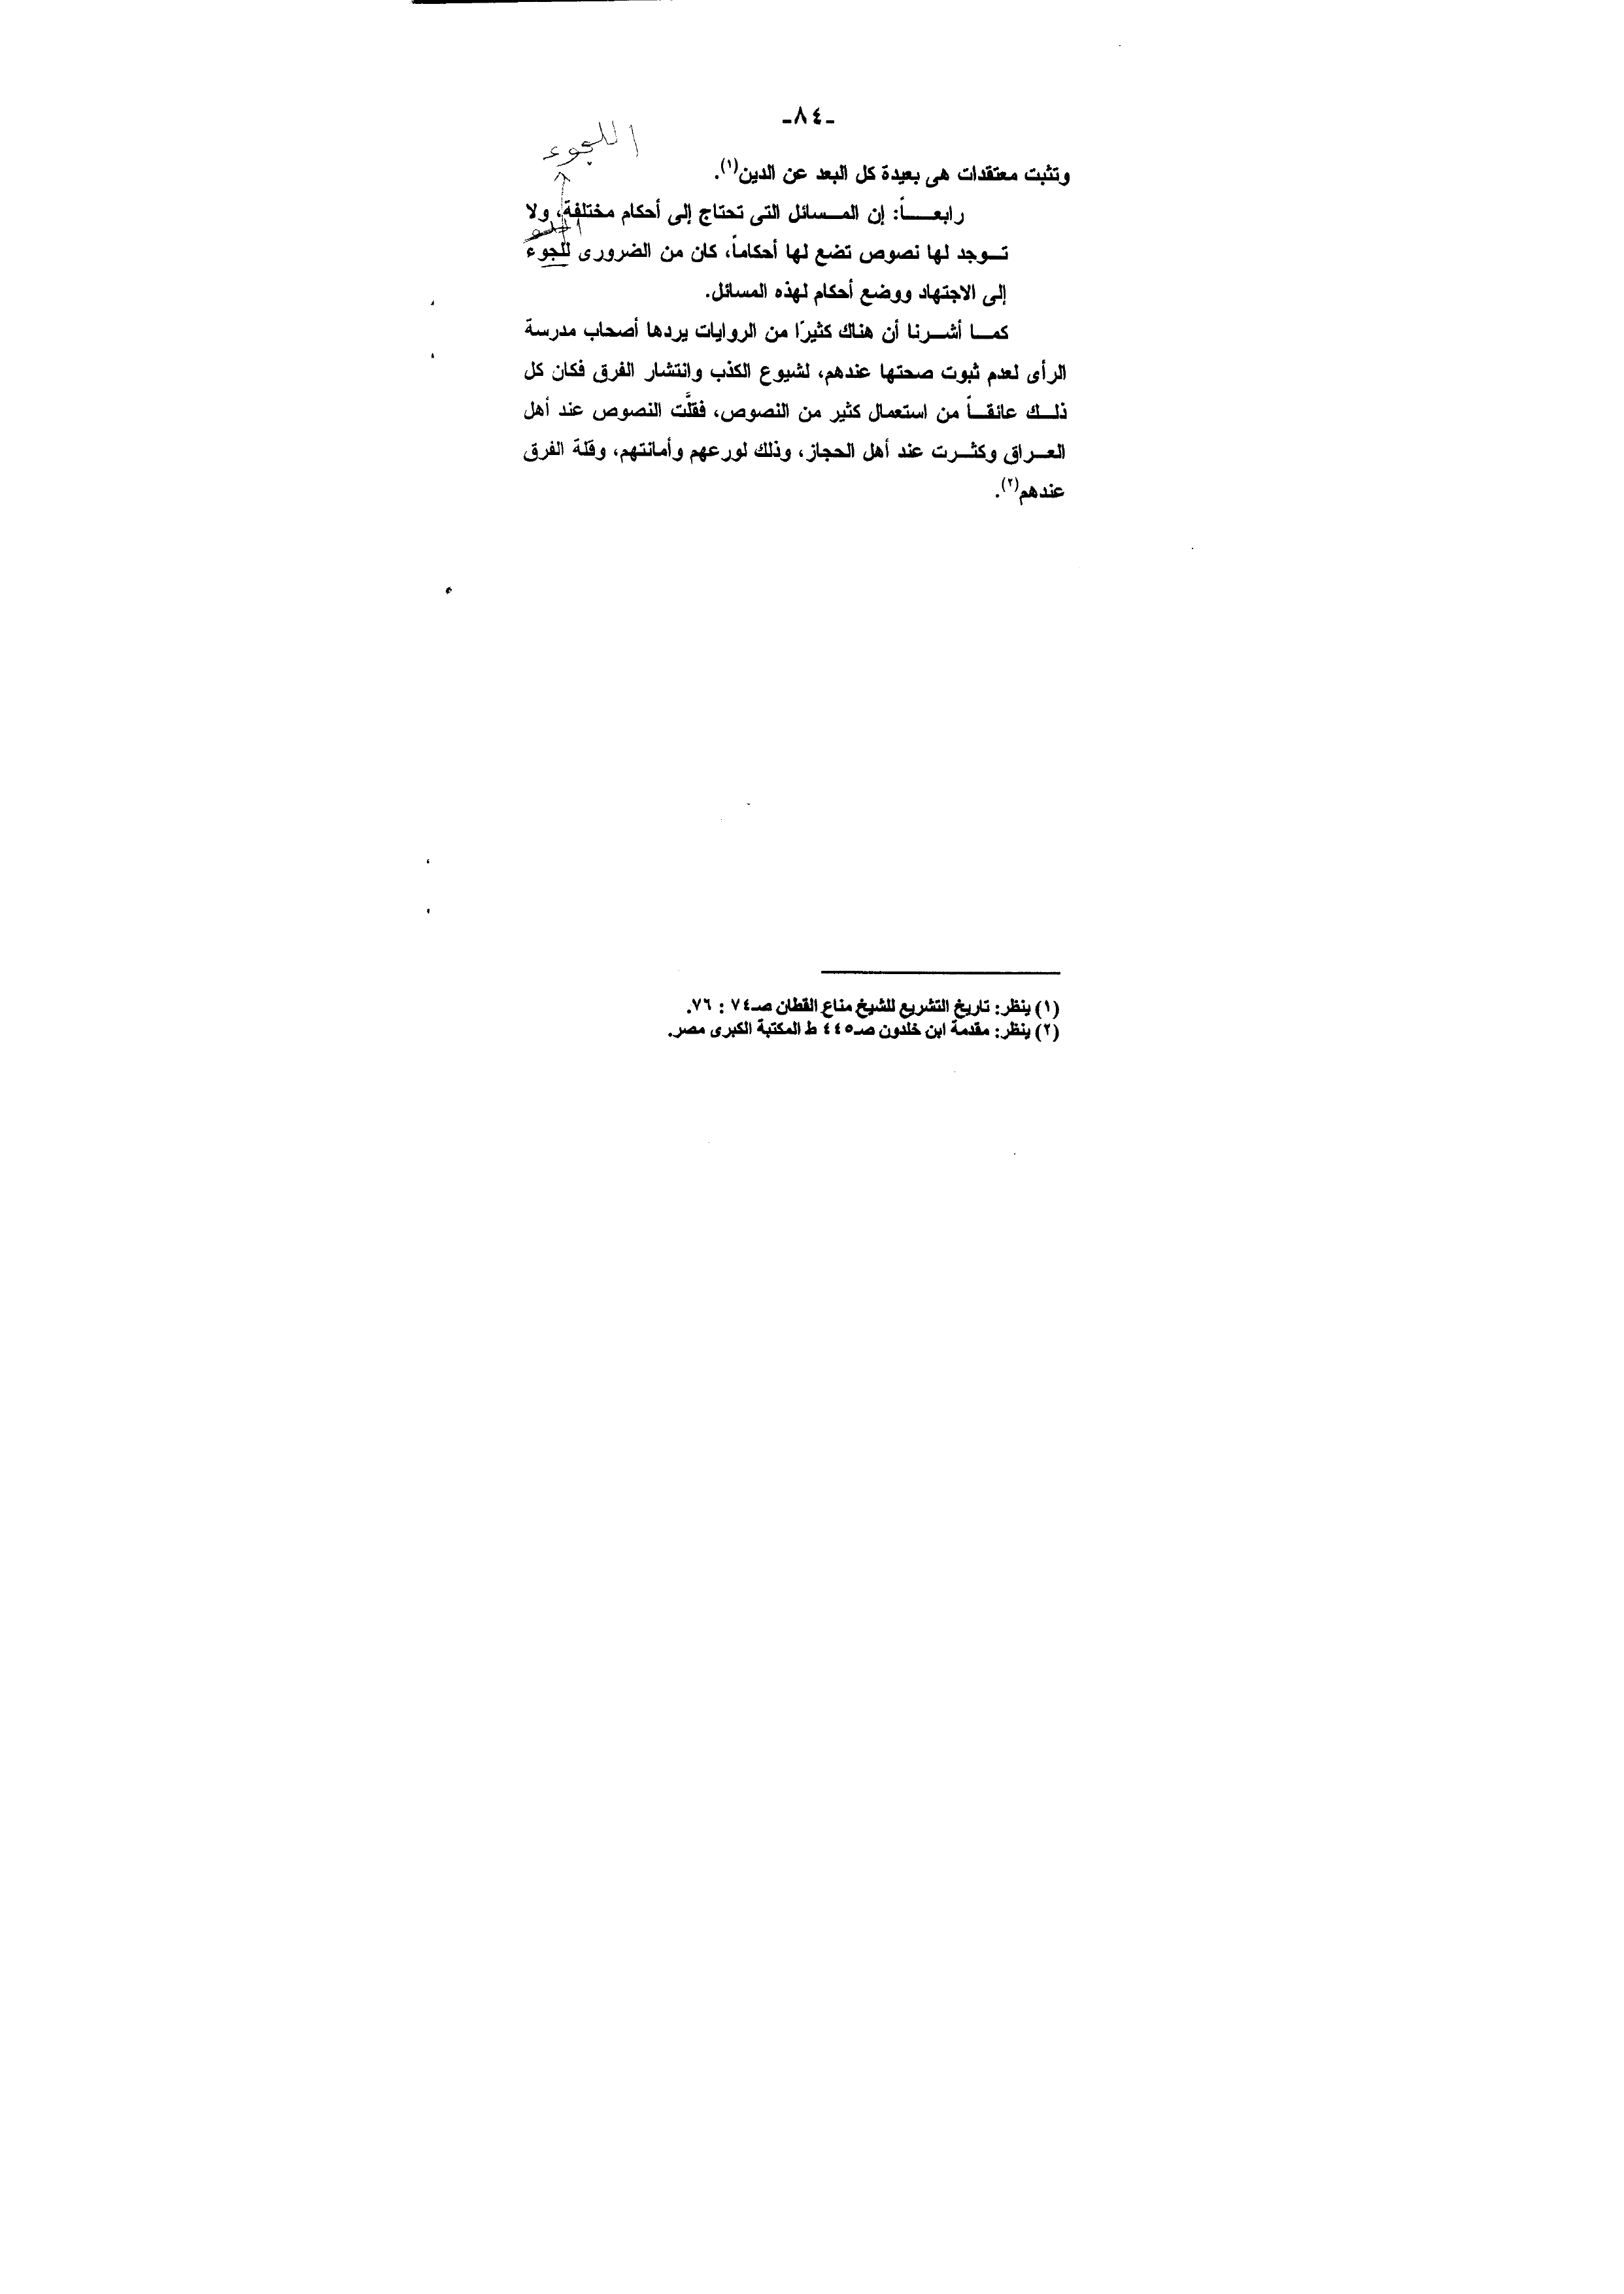 -٨٤-
اللجوء
وتثبت معتقدات هى بعيدة كل البعد عن الدين(١).
رابعـــاً: إن المـسائل التى تحتاج إلى أحكام مختلفة، ولا
تـوجد لها نصوص تضع لها أحكاماً، كان من الضرورى للجوء
إلى الاجتهاد ووضع أحكام لهذه المسائل.
كمـا أشـرنا أن هناك كثيرًا من الروايات يردها أصحاب مدرسة
الرأى لعدم ثبوت صحتها عندهم، لشيوع الكذب وانتشار الفرق فكان كل
ذلـك عائقـاً من استعمال كثير من النصوص، فقلَّت النصوص عند أهل
العـراق وكثـرت عند أهل الحجاز، وذلك لورعهم وأمانتهم، وقلة الفرق
عندهم(٢).
(١) ينظر: تاريخ التشريع للشيخ مناع القطان صـ٧٤ : ٧٦.
(٢) ينظر: مقدمة ابن خلدون صـ٤٤٥ ط المكتبة الكبرى مصر.